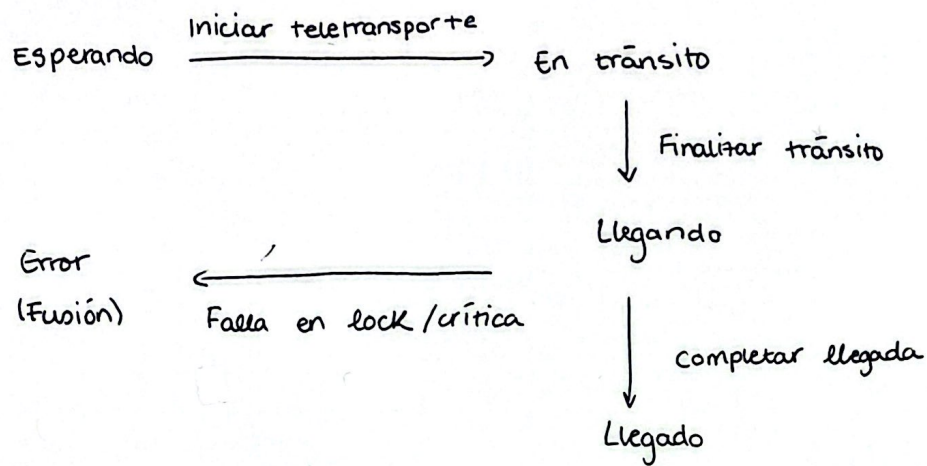 Iniciar teletransporte
Esperando
En tránsito
Finalizar tránsito
Llegando
Error
(Fusión)
Falla en lock/crítica
completar llegada
Llegado